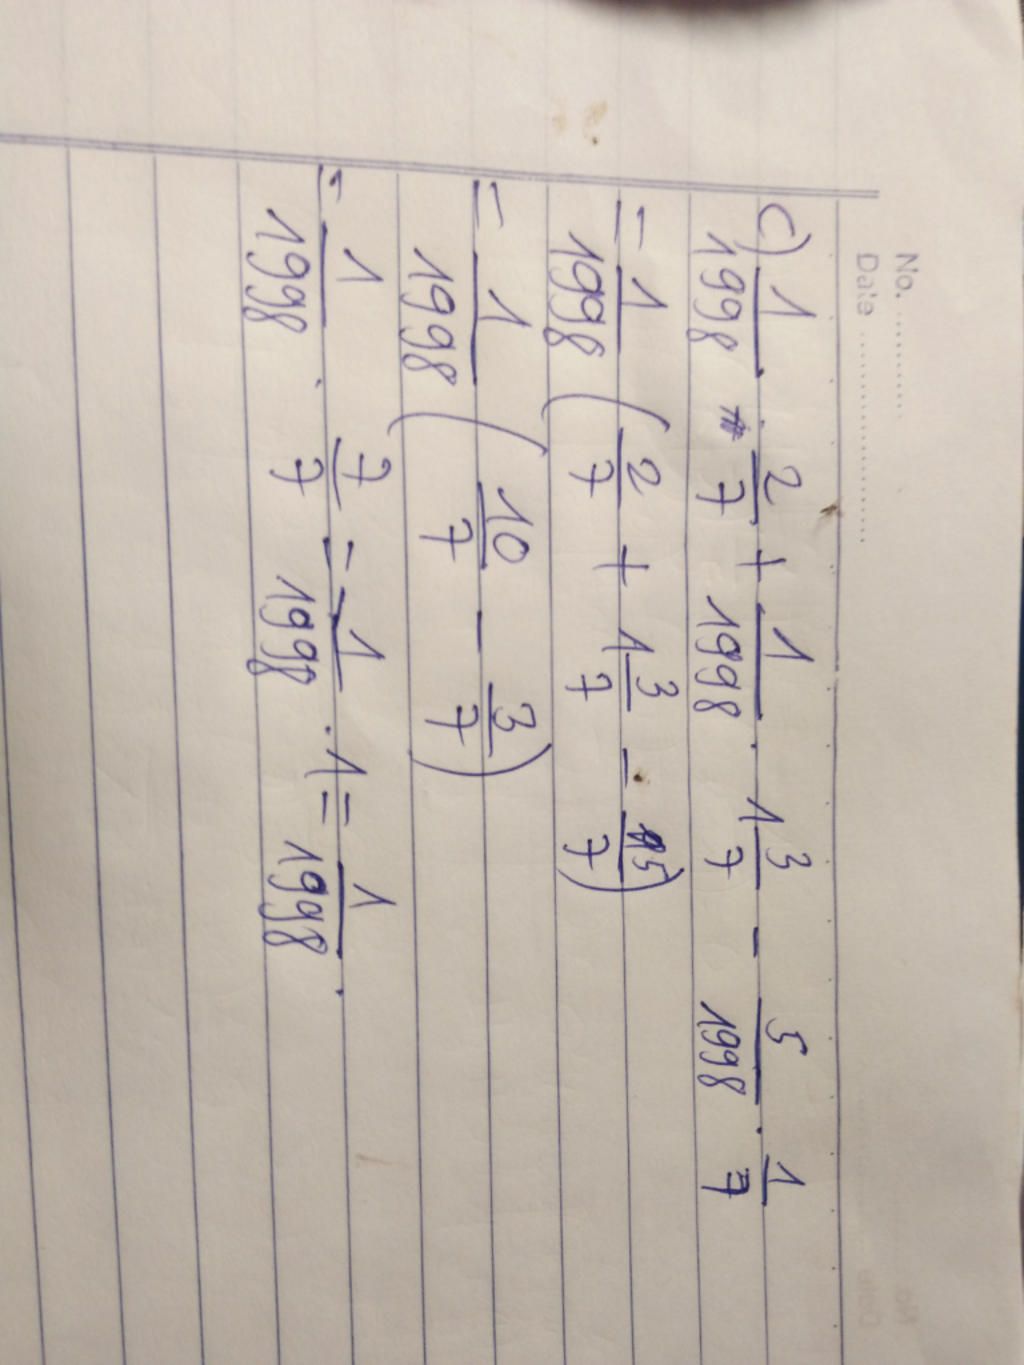 No. ............
Date ......................
c) 1/1998 . 2/7 + 1/1998 . 1 3/7 - 5/1998 . 1/7
= 1/1998 ( 2/7 + 1 3/7 - 5/7 )
= 1/1998 ( 10/7 - 3/7 )
= 1/1998 . 7/7 = 1/1998 . 1 = 1/1998 .